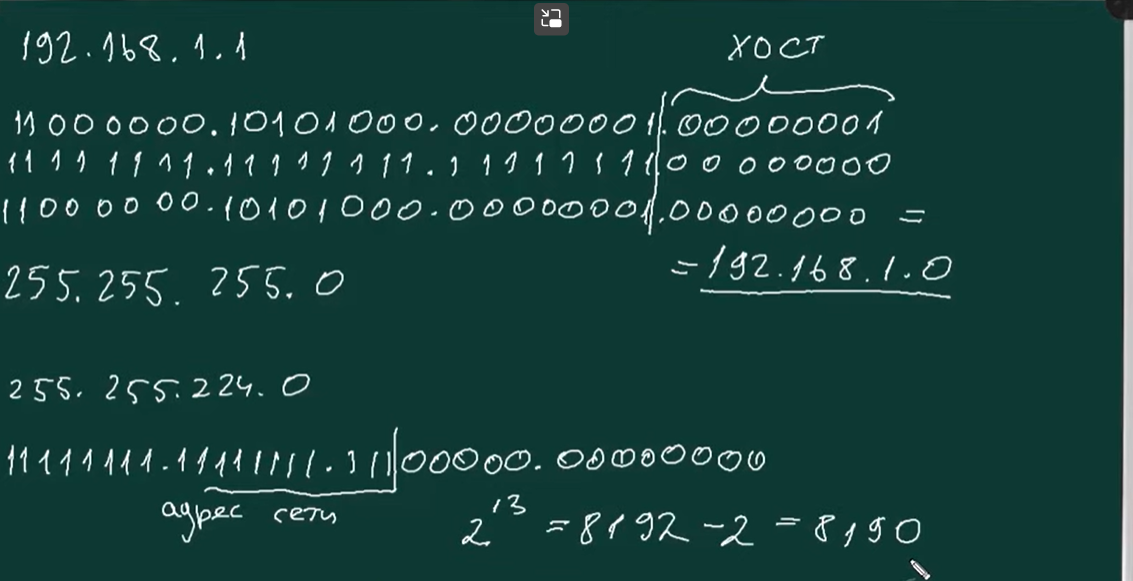 192.168.1.1
ХОСТ
11000000.10101000.00000001.00000001
11111111.11111111.1111111100000000
11000000.10101000.00000001.00000000 =
= 192.168.1.0
255.255.255.0
255.255.224.0
11111111.11111111.11100000.00000000
адрес сети
2¹³ = 8192 - 2 = 8190